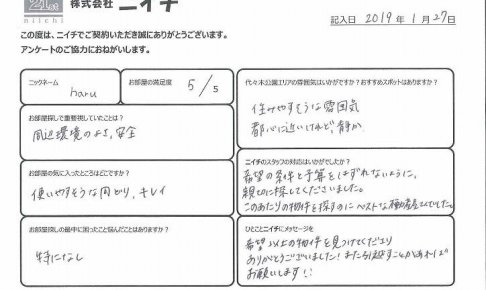 21st
niichi
株式会社 ニイチ
記入日 2019年 1月 27日
この度は、ニイチでご契約いただき誠にありがとうございます。
アンケートのご協力におねがいします。
ニックネーム
haru
お部屋の満足度
5/5
お部屋探しで重要視していたことは?
周辺環境のよさ、安全
お部屋の気に入ったところはどこですか?
使いやすそうな間どり、キレイ
お部屋探しの最中に困ったこと悩んだことはありますか?
特になし
代々木公園エリアの雰囲気はいかがですか?おすすめスポットはありますか?
住みやすそうな雰囲気
都心に近いけれど、静か
ニイチのスタッフの対応はいかがでしたか?
希望の条件と予算をはずれないように、
親切に探してくださいました。
このあたりの物件を探すのにベストな不動産屋さんでした。
ひとことニイチにメッセージを
希望以上の物件を見つけてくださり
ありがとうございました!また引越すことがあれば
お願いします!!